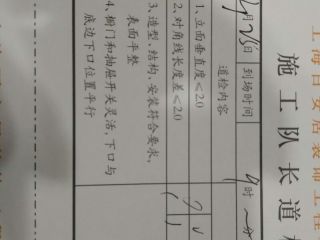 上海百安居装饰工程
施工队长道
月25日 到场时间 9时 分
道检内容
1、立面垂直度<2.0
2、对角线长度差<2.0
3、造型、结构、安装符合要求,
表面平整
4、橱门和抽屉开关灵活,下口与
底边下口位置平行